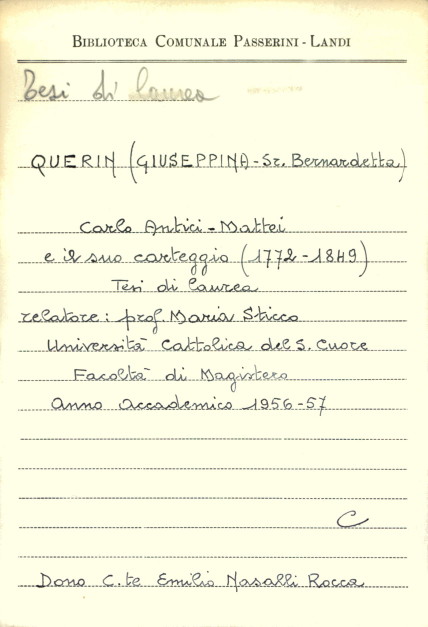 BIBLIOTECA COMUNALE PASSERINI - LANDI
Tesi di laurea
QUERIN (GIUSEPPINA - Sr. Bernardetta)
Carlo Antici - Mattei
e il suo carteggio (1772 - 1849)
Tesi di laurea
relatore: prof. Maria Sticco
Università Cattolica del S. Cuore
Facoltà di Magistero
Anno accademico 1956-57
C
Dono C.te Emilio Nasalli Rocca